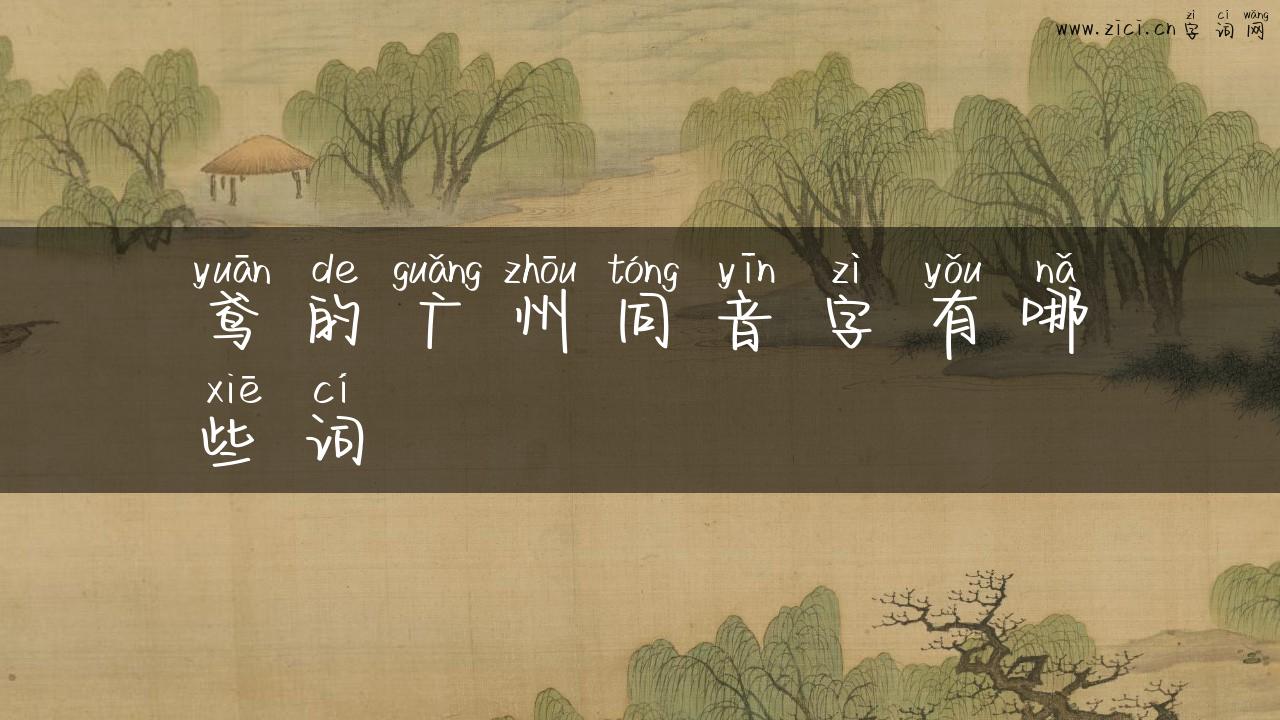 zì cí wǎng
www.zīcī.cn 字 词 网
yuān de guǎng zhōu tóng yīn zì yǒu nǎ
鸢 的 广 州 同 音 字 有 哪
xiē cí
些 词